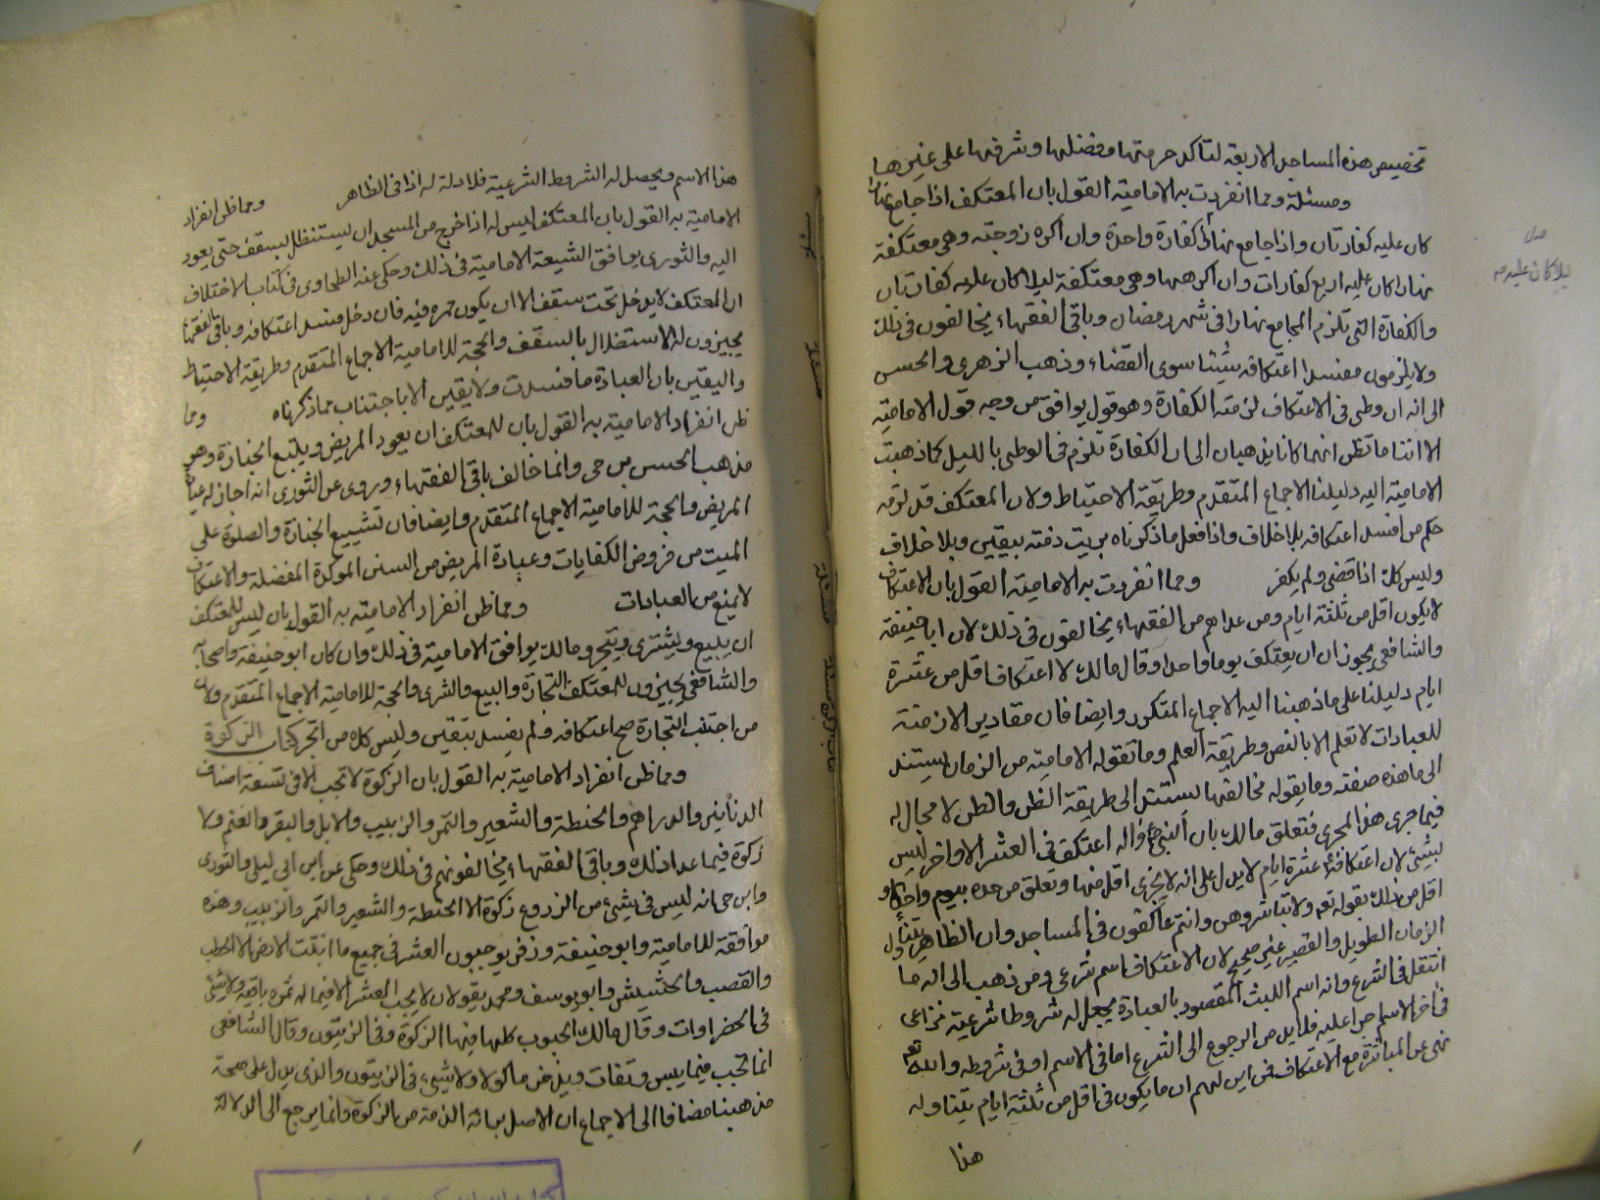 تخصيص هذه المساجد الاربعة لتأكد حرمتها وفضلها وشرفها على غيرها
ومسئلة ومما انفردت به الامامية القول بان المعتكف اذا جامع نهارا
كان عليه كفارتان واذا جامع كفارة واحدة وان اكره زوجته وهى معتكفة
نهارا كان عليه اربع كفارات وان اكرهها وهى معتكفة ليلا كان عليه كفارتان
والكفارة التى تلزم المجامع نهارا فى شهر رمضان وباقى الفقهاء يخالفون فى ذلك
ولا يلزمون مفسد اعتكافه شيئا سوى القضاء وذهب الزهرى والحسن
الى انه ان وطى فى الاعتكاف لزمته الكفارة وهو قول يوافق من وجه قول الامامية
الا اننا ما نظن انهما كانا يذهبان الى ان الكفارة تلزم فى الوطى بالليل كما ذهبت
الامامية اليه دليلنا الاجماع المتقدم وطريقة الاحتياط ولان المعتكف قد لزمه
حكم من افسد اعتكافه بلا خلاف واذا فعل ما ذكرناه بريت ذمته بيقين وبلا خلاف
وليس كك اذا قضى ولم يكفر ومما انفردت به الامامية القول بان الاعتكاف
لا يكون اقل من ثلثة ايام ومن عداهم من الفقهاء يخالفون فى ذلك لان ابا حنيفة
والشافعى يجوزان ان يعتكف يوما واحدا وقال مالك لا اعتكاف اقل من عشرة
ايام دليلنا على ما ذهبنا اليه الاجماع المتكرر وايضا فان مقادير الازمنة
للعبادات لا تعلم الا بالنص وطريقة العلم وما تقوله الامامية من الزمان يستند
الى ما هذه صفته وما يقوله مخالفها يستند الى طريقة الظن والظن لا مجال له
فيما جرى هذا المجرى فتعلق مالك بان النبى ص واله اعتكف فى العشر الاواخر ليس
بشئ لان اعتكافه عشرة ايام لا يدل على انه لا يجزى اقل منها وتعلق من حده بيوم واحد او
اقل من ذلك بقوله تعم ولا تباشروهن وانتم عاكفون فى المساجد وان الظاهر يتناول
الزمان الطويل والقصير غير صحيح لان الاعتكاف اسم شرعى ومن ذهب الى انه ما
انتقل فى الشرع وانه اسم اللبث المقصود بالعبادة يجعل له شروطا شرعية تراعى
فى اجراء الاسم عليه فلا بد من الرجوع الى الشرع اما فى الاسم او فى شروطه والله تعم
نهى عن المباشرة مع الاعتكاف فمن اين لهم ان ما يكون فى اقل من ثلثة ايام يتناوله
هذا
ليلا كان عليه
هذا الاسم ويحصل له الشروط الشرعية فلا دلالة له اذا فى الظاهر ومما ظن انفراد
الامامية به القول بان المعتكف ليس له اذا خرج من المسجد ان يستظل بسقف حتى يعود
اليه والثورى يوافق الشيعة الامامية فى ذلك وحكى عنه الطحاوى فى كتاب الاختلاف
ان المعتكف لا يدخل تحت سقف الا ان يكون ممره فيه فان دخل فسد اعتكافه وباقى الفقهاء
يجيزون له الاستظلال بالسقف والحجة للامامية الاجماع المتقدم وطريقة الاحتياط
واليقين بان العبادة ما فسدت ولا يقين الا باجتناب ما ذكرناه ومما
ظن انفراد الامامية به القول بان للمعتكف ان يعود المريض ويتبع الجنازة وهو
مذهب الحسن بن حى وانما خالف باقى الفقهاء وروى عن الثورى انه اجاز له عيادة
المريض والحجة للامامية الاجماع المتقدم وايضا فان تشييع الجنازة والصلوة على
الميت من فروض الكفايات وعيادة المريض من السنن الموكدة المفضلة والاعتكاف
لا يمنع من العبادات ومما ظن انفراد الامامية به القول بان ليس للمعتكف
ان يبيع ويشترى ويتجر ومالك يوافق الامامية فى ذلك وان كان ابو حنيفة واصحابه
والشافعى يجيزون للمعتكف التجارة والبيع والشرى والحجة للامامية الاجماع المتقدم ولان
من اجتنب التجارة صح اعتكافه ولم يفسد بيقين وليس كك من اتجر كتاب الزكوة
ومما ظن انفراد الامامية به القول بان الزكوة لا تجب الا فى تسعة اصناف
الدنانير والدراهم والحنطة والشعير والتمر والزبيب والابل والبقر والغنم ولا
زكوة فيما عدا ذلك وباقى الفقهاء يخالفونهم فى ذلك وحكى عن ابن ابى ليلى والثورى
وابن حى انه ليس فى شئ من الزروع زكوة الا الحنطة والشعير والتمر والزبيب وهذه
موافقة للامامية وابو حنيفة وزفر يوجبون العشر فى جميع ما انبتت الارض الا الحطب
والقصب والحشيش وابو يوسف ومحمد يقولان لا يجب العشر الا فيما له ثمرة باقية ولا شئ
فى الخضراوات وقال مالك الحبوب كلها فيها الزكوة وفى الزيتون وقال الشافعى
انما تجب فيما ييبس ويقتات ويدخر ماكولا ولا شئ فى الزيتون والذى يدل على صحة
مذهبنا مضافا الى الاجماع ان الاصل براءة الذمة من الزكوة وانما يرجع الى الادلة